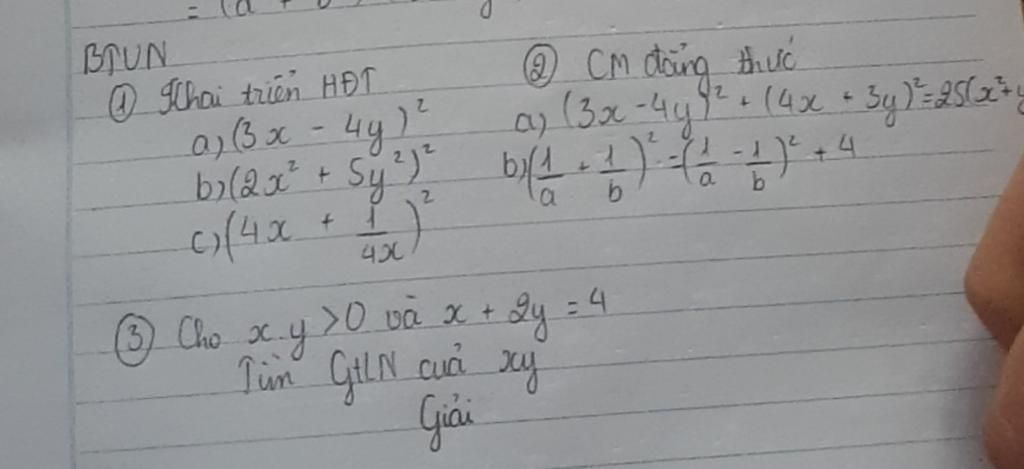 = (a +
BTVN
① Khai triển HĐT
a) (3x - 4y)²
b) (2x² + 5y²)²
c) (4x + 1/4x)²
② CM đẳng thức
a) (3x - 4y)² + (4x + 3y)² = 25(x² + y
b) (1/a + 1/b)² = (1/a - 1/b)² + 4
③ Cho x.y > 0 và x + 2y = 4
Tìm GTLN cuả xy
Giải